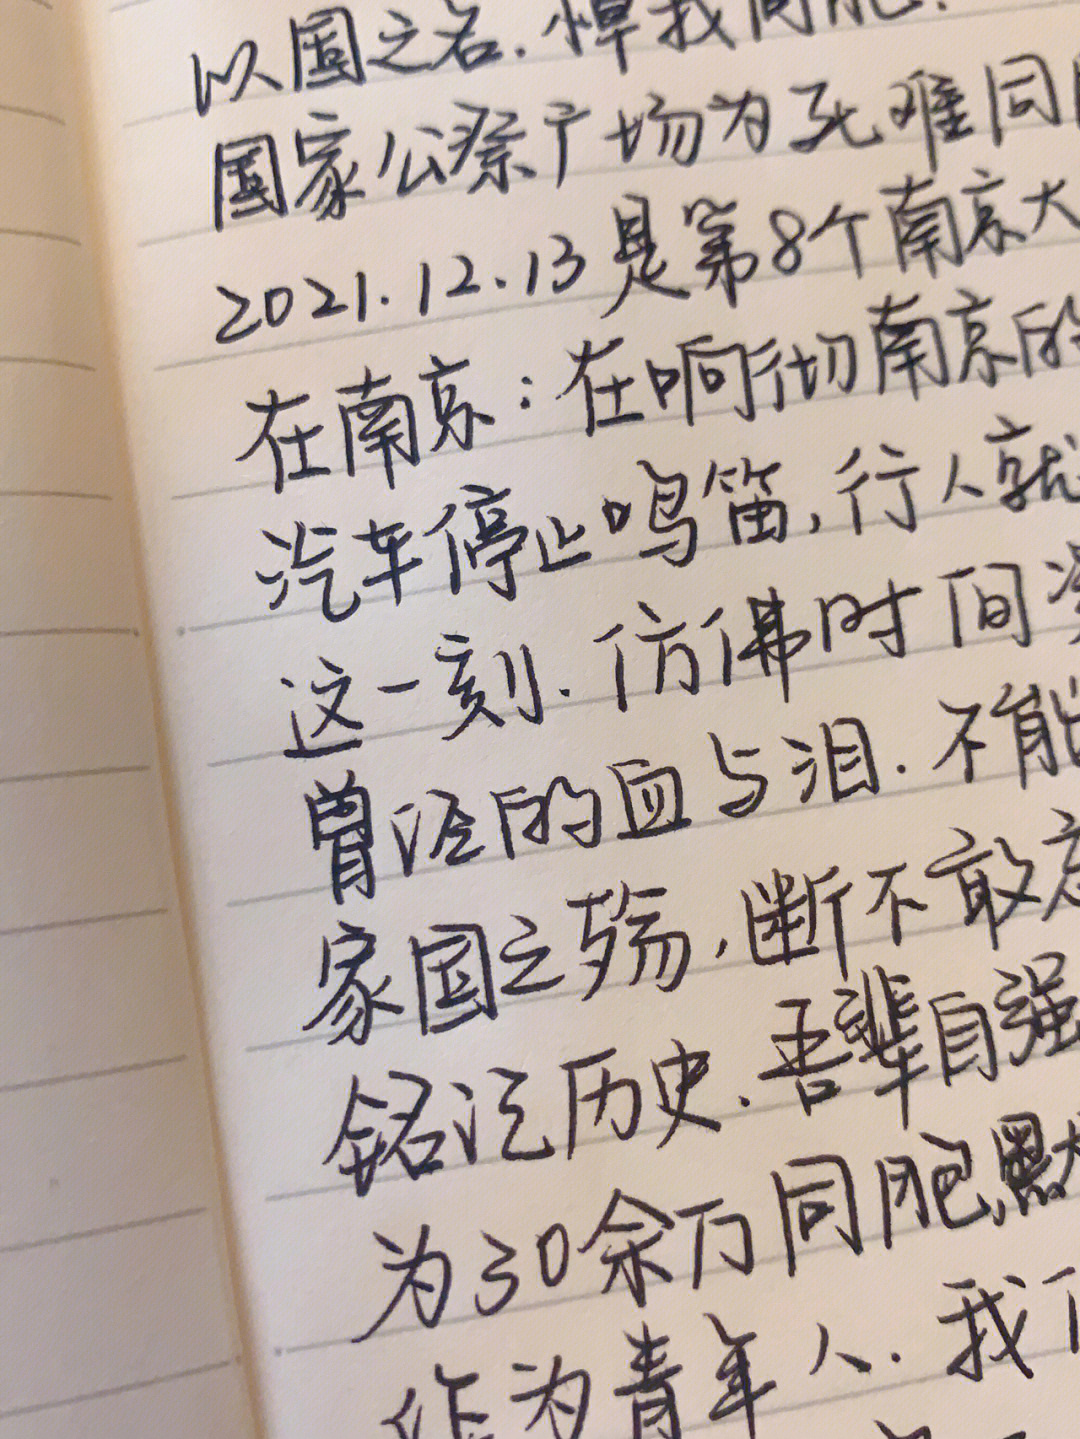 以国之名.悼我同胞.
国家公祭广场为死难同胞
2021.12.13是第8个南京大
在南京:在响彻南京的
汽车停止鸣笛,行人就
这一刻.仿佛时间
曾经的血与泪.不能
家国之殇,断不敢忘
铭记历史.吾辈自强
为30余万同胞,默
作为青年人.我们